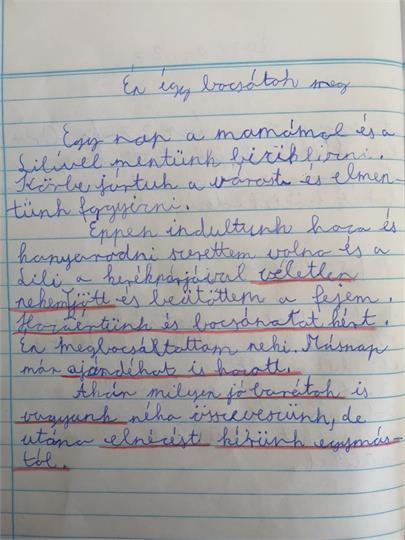 Én így bocsátok meg
Egy nap a mamámal és a
Lilível mentünk biciklizni.
Körbe jártuk a várost és elmen-
tünk fagyizni.
Éppen indultunk haza és
kanyarodni szerettem volna és a
Lili a kerékpárjával véletlen
nekemjött és beütöttem a fejem.
Hazaértünk és bocsánatat kért.
Én megbocsáltattam neki. Másnap
már ajándékot is hozott.
Akán milyen jó barátok is
vagyunk néha összeveszünk, de
utána elnézést kérünk egymás-
tól.